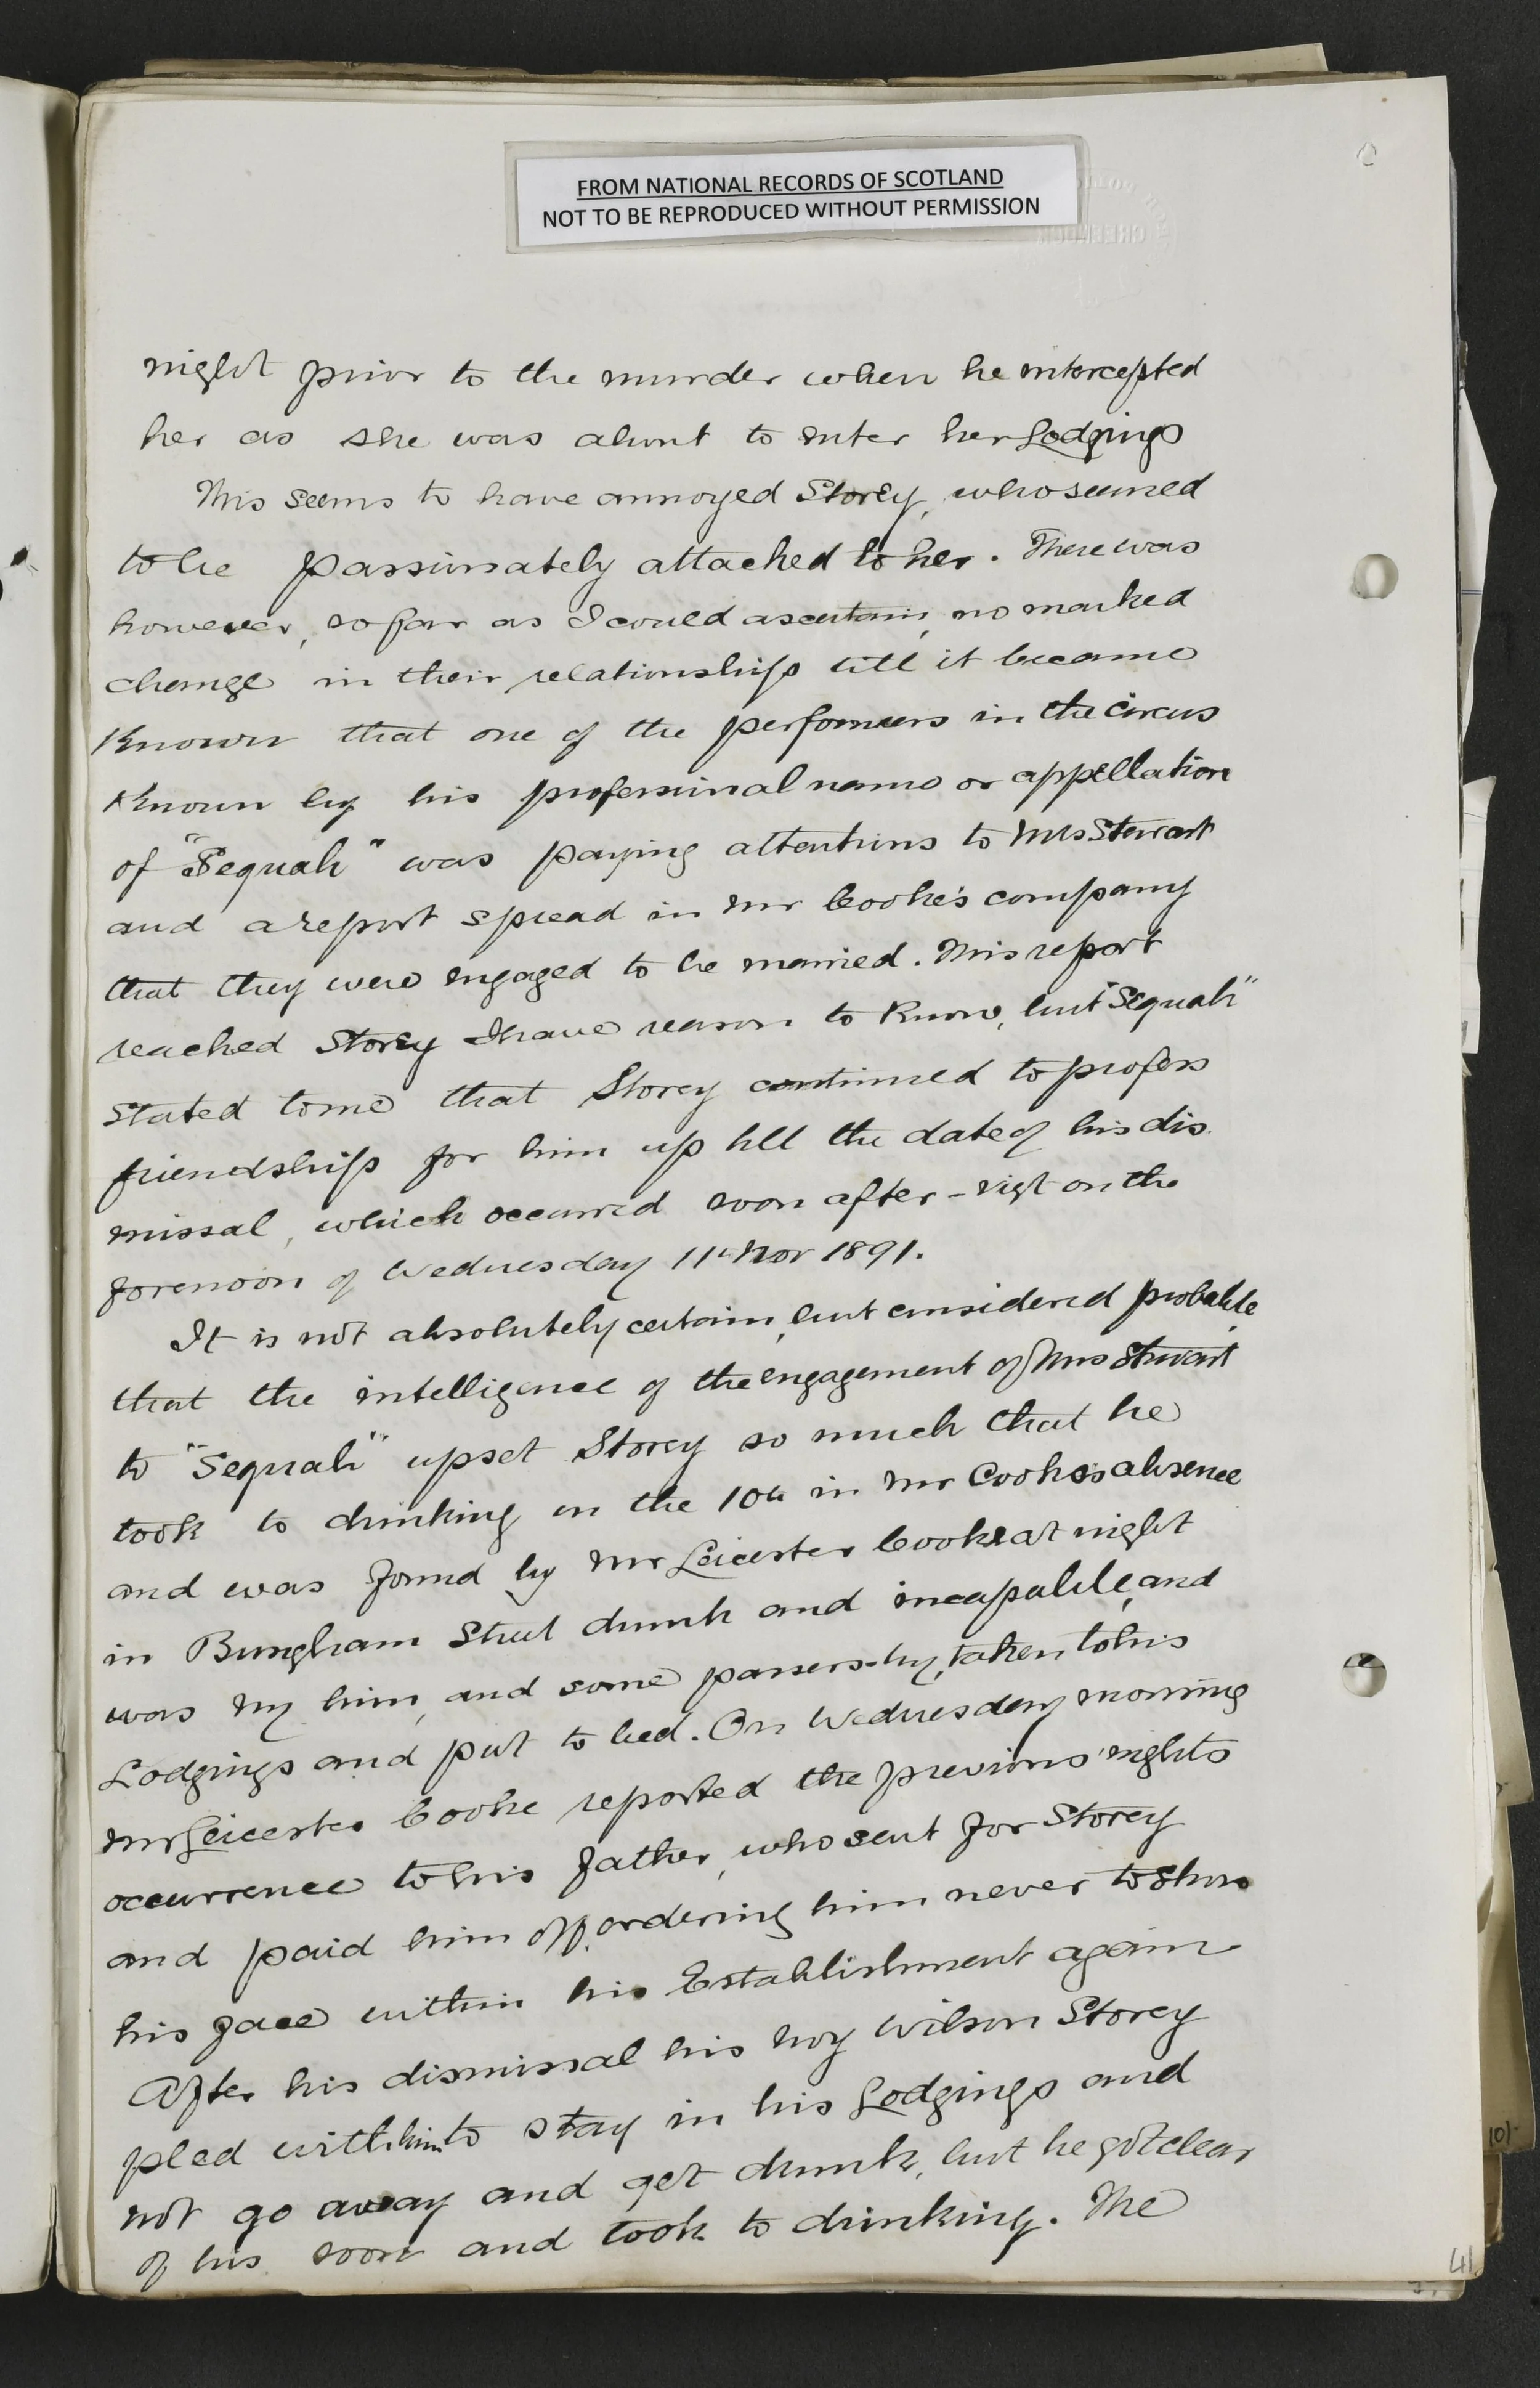 FROM NATIONAL RECORDS OF SCOTLAND
NOT TO BE REPRODUCED WITHOUT PERMISSION
night prior to the murder when he intercepted
her as she was about to enter her Lodgings
This seems to have annoyed Storey, who seemed
to be passionately attached to her. There was
however, so far as I could ascertain, no marked
change in their relationship till it became
Known that one of the performers in the Circus
Known by his professional name or appellation
of "Sequah" was paying attentions to Mrs Stewart
and a report spread in Mr Cooke's company
that they were engaged to be married. This report
reached Storey I have reason to Know, but "Sequah"
stated to me that Storey continued to profess
friendship for him up till the date of his dis
missal, which occurred soon after - vizt on the
forenoon of Wednesday 11th Nov 1891.
It is not absolutely certain, but considered probable,
that the intelligence of the engagement of Mrs Stewart
to "Sequah" upset Storey so much that he
took to drinking on the 10th in Mr Cooke's absence
and was found by Mr Leicester Cooke at night
in Bungham Street drunk and incapable, and
was by him, and some passers-by, taken to his
Lodgings and put to bed. On Wednesday morning
Mr Leicester Cooke reported the previous nights
occurrence to his father, who sent for Storey
and paid him off, ordering him never to show
his face within his Establishment again
After his dismissal his boy Wilson Storey
pled with him to stay in his Lodgings and
not go away and get drunk, but he got clear
of his soon and took to drinking. The
41
10/-